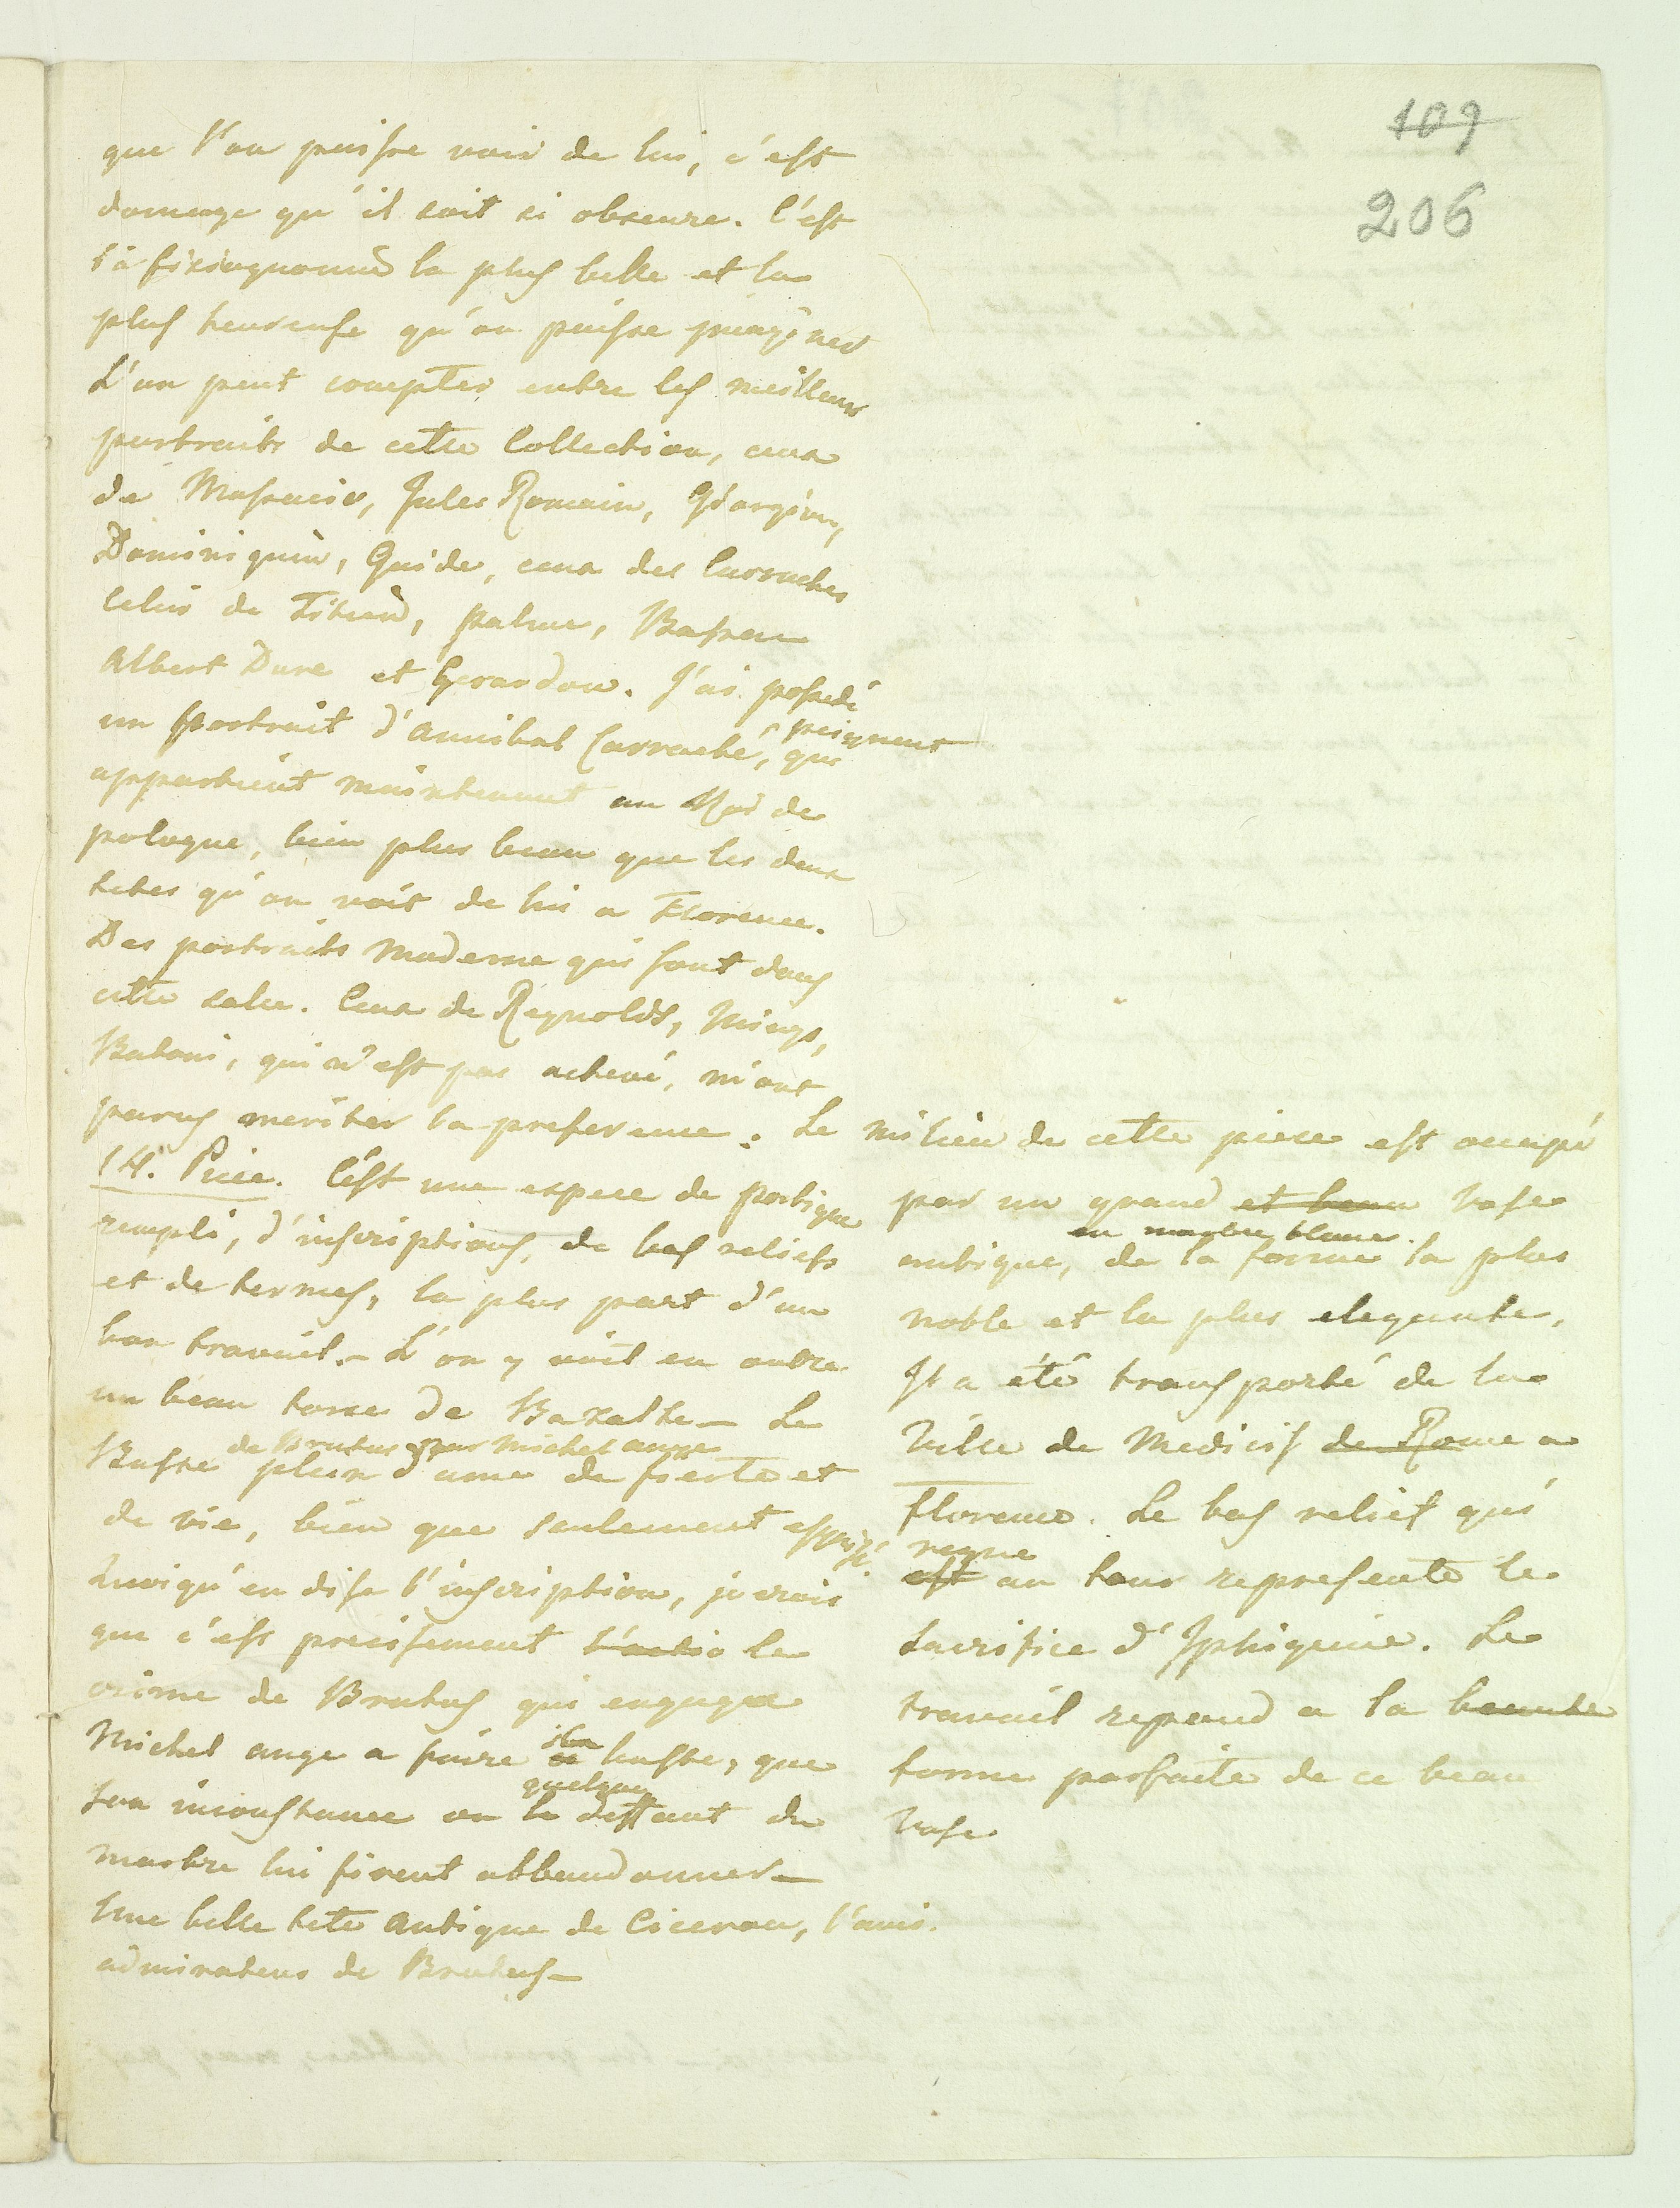 109
206
que l'on puisse voir de lui, c'est
domage qu'il soit si obscure. C'est
la fisiognomie la plus belle et la
plus heureuse qu'on puisse imaginer
L'on peut compter entre les meilleurs
portraits de cette Collection, ceux
de Masacio, Jules Romain, Giorgion,
Dominiquin, Guide, ceux des Carraches
Celui de Titien, palme, Bassan
Albert Dure et Gerardow. J'ai possedé
un portrait d'Annibal Carrache, peignent qui
appartient maintenant au Roi de
pologne, bien plus beau que les deux
tetes qu'on voit de lui a Florence.
Des portraits moderne qui sont dans
cette sale. Ceux de Reynolds, Mings,
Batoni, qui n'est pas achevé, m'ont
parus meriter la preference. Le milieu de cette piece est occupé
14. Piece. C'est une espece de portique
rempli, d'inscriptions, de bas reliefs
et de termes, la plus part d'un
bon travail. L'on y voit en outre
un beau torse de Bazalte – Le
de Brutus par Michel ange
Buste plein d'ame de fierté et
de vie, bien que seulement esquissé.
Quoiqu'en dise l'inscription, je crois
que c'est precisement l'actio le
crime de Brutus qui engagea
Michel ange a faire ce buste, que
quelque
son inconstance ou le deffaut du
marbre lui firent abbandonner –
Une belle tete Antique de Ciceron, l'ami.
admirateur de Brutus –
par un grand et beau Vase
en marbre blanc.
antique, de la forme la plus
noble et la plus elegante,
Il a été transporté de la
Ville de Medicis de Rome a
Florence. Le bas relief qui
regne
est au tour represente le
Sacrifice d'Iphigenie. Le
travail repond a la beaute
forme parfaite de ce beau
Vase